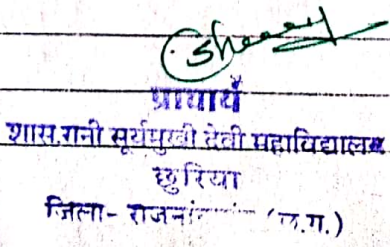 प्राचार्य
शास. रानी सूर्यमुखी देवी महाविद्यालय
छुरिया
जिला- राजनांदगांव (छ.ग.)